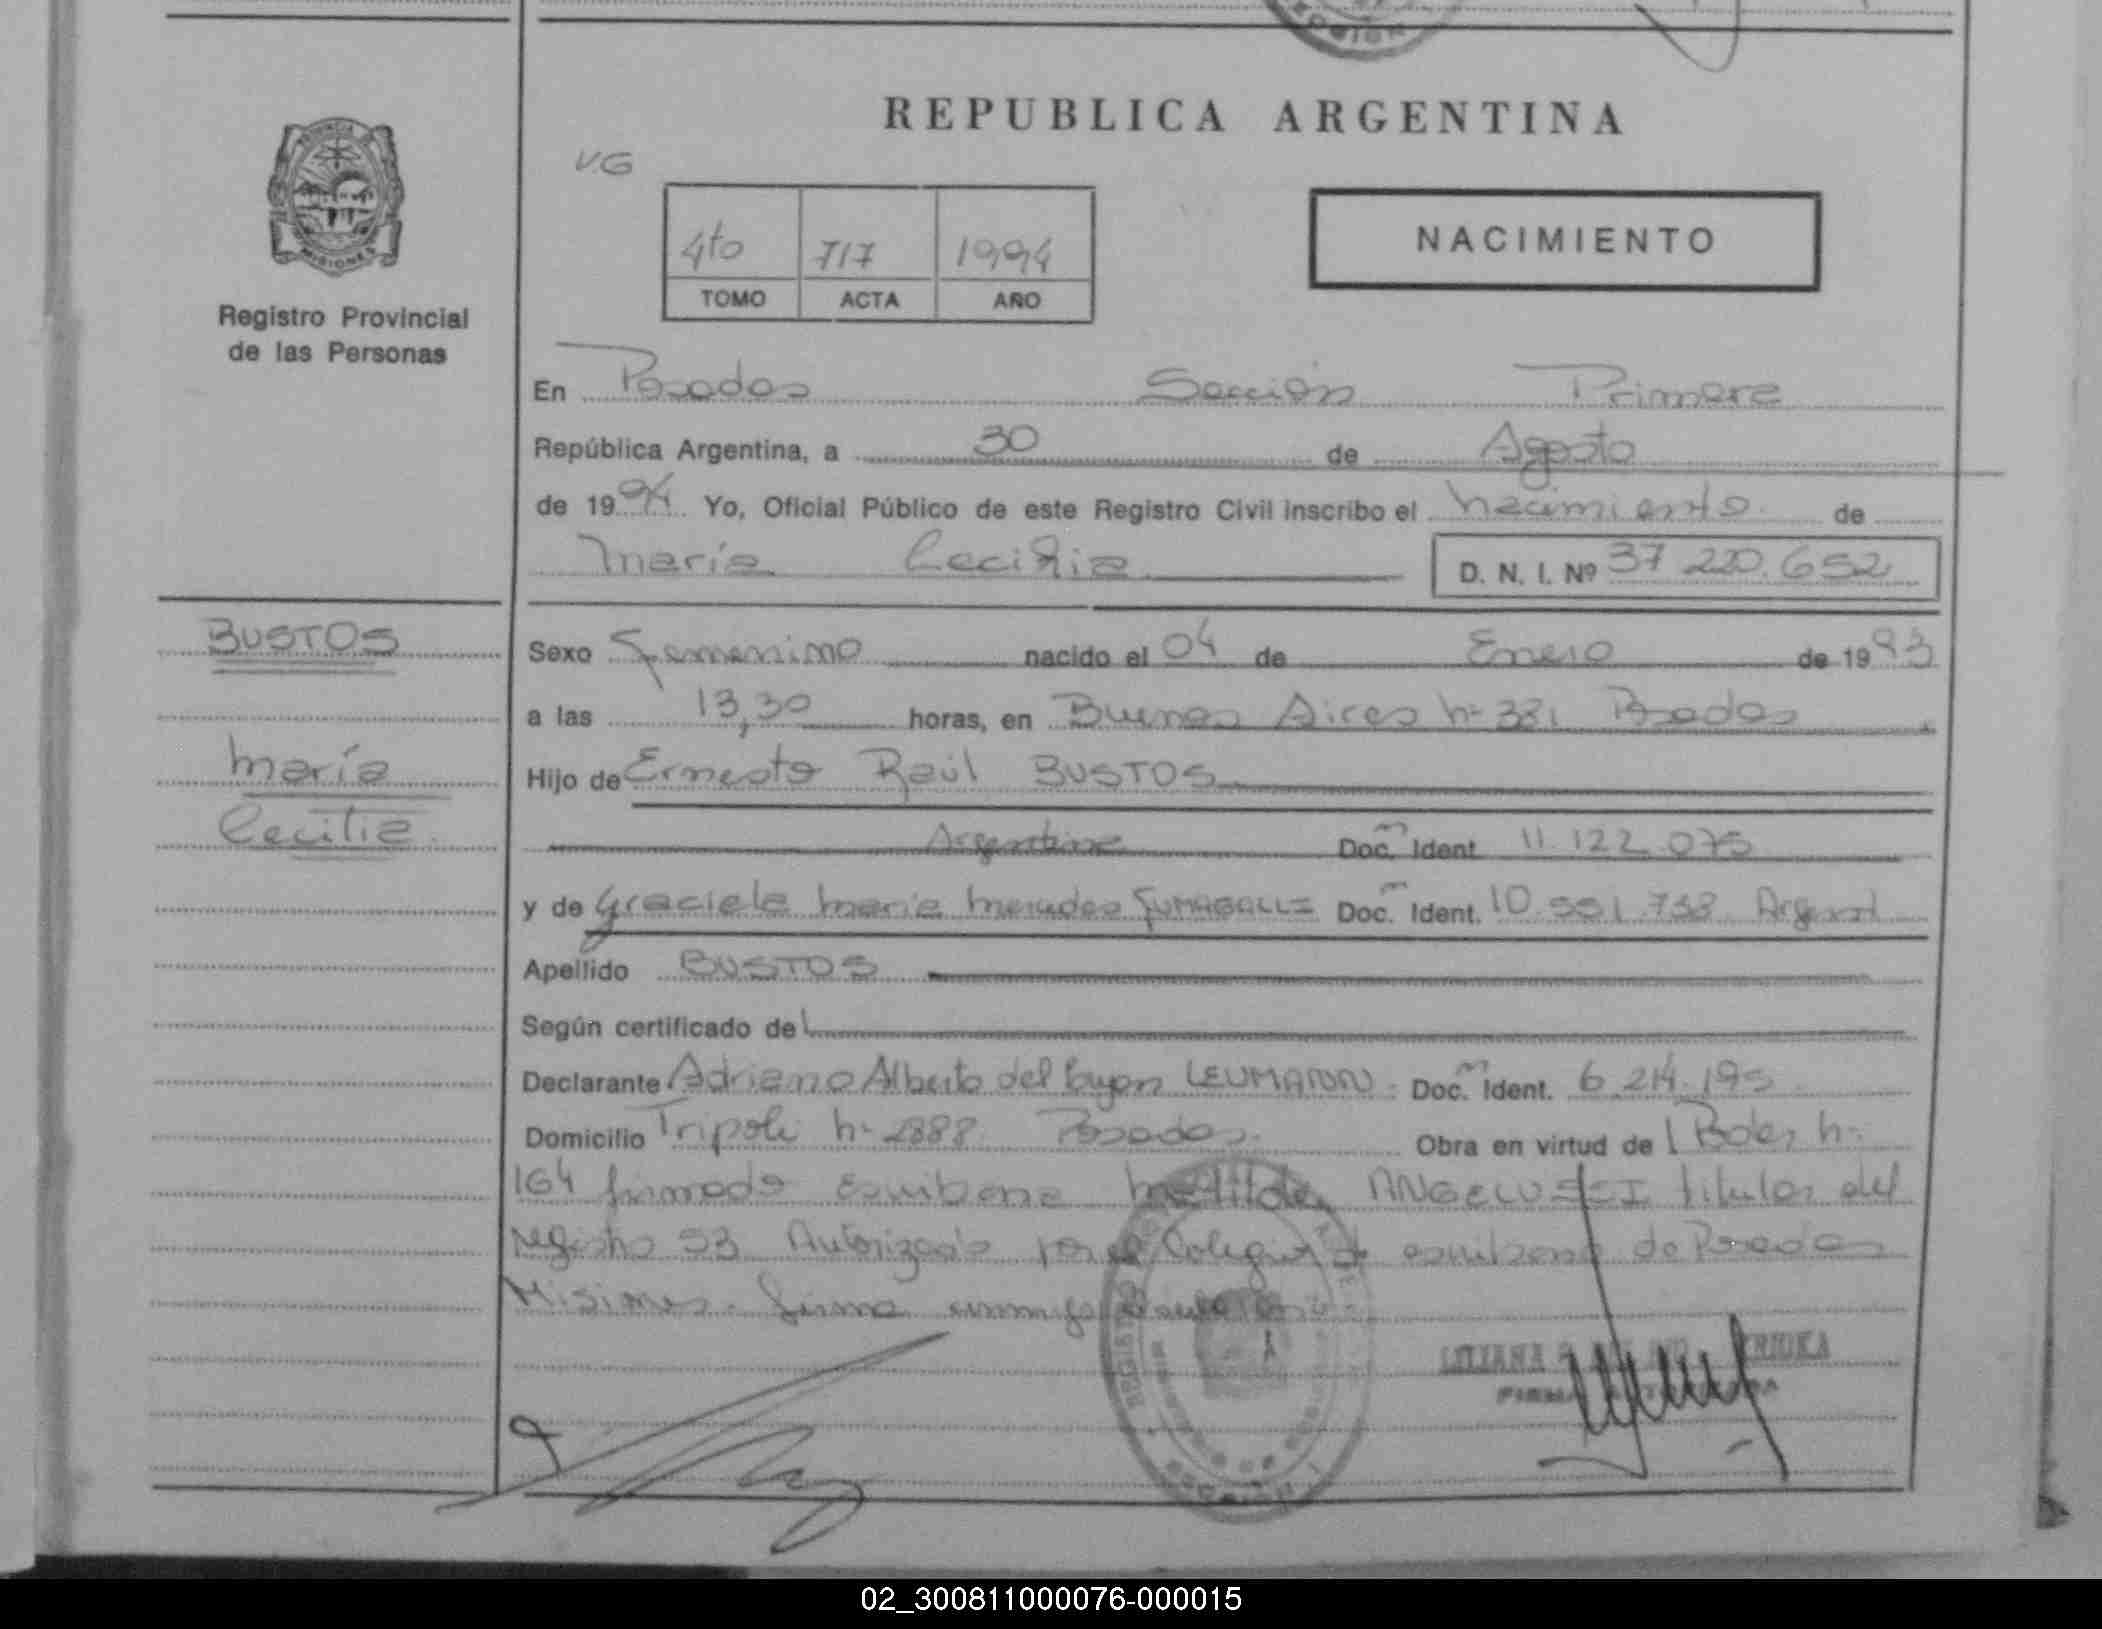 REPUBLICA ARGENTINA
V.G
4to 717 1994
TOMO ACTA AÑO
NACIMIENTO
PROVINCIA
MISIONES
Registro Provincial
de las Personas
En Posadas Sección Primera
República Argentina, a 30 de Agosto
de 1994 Yo, Oficial Público de este Registro Civil inscribo el nacimiento de
María Cecilia D. N. I. Nº 37 220.652
BUSTOS
María
Cecilia
Sexo Femenino nacido el 04 de Enero de 1993
a las 13,30 horas, en Buenos Aires nº 381 Posadas
Hijo de Ernesto Raúl BUSTOS
Argentina Doc. Ident 11.122.075
y de Graciela María Mercedes Doc. Ident. 10.551.738 Argent
Apellido BUSTOS
Según certificado de
Declarante Adriano Alberto del LEUMANN Doc. Ident. 6.214.195
Domicilio Tripoli nº 2888 Posadas. Obra en virtud de
164 firmado escribana ANGELUSSI titular del
registro 53 Autorizado por el Colegio de escribano de Posadas
Misiones. firma
LILIANA
02_300811000076-000015